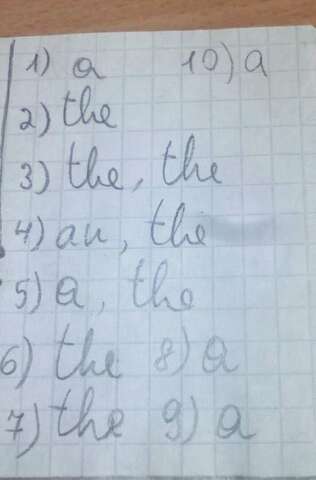 1) a 10) a
2) the
3) the, the
4) an, the
5) a, the
6) the 8) a
7) the 9) a